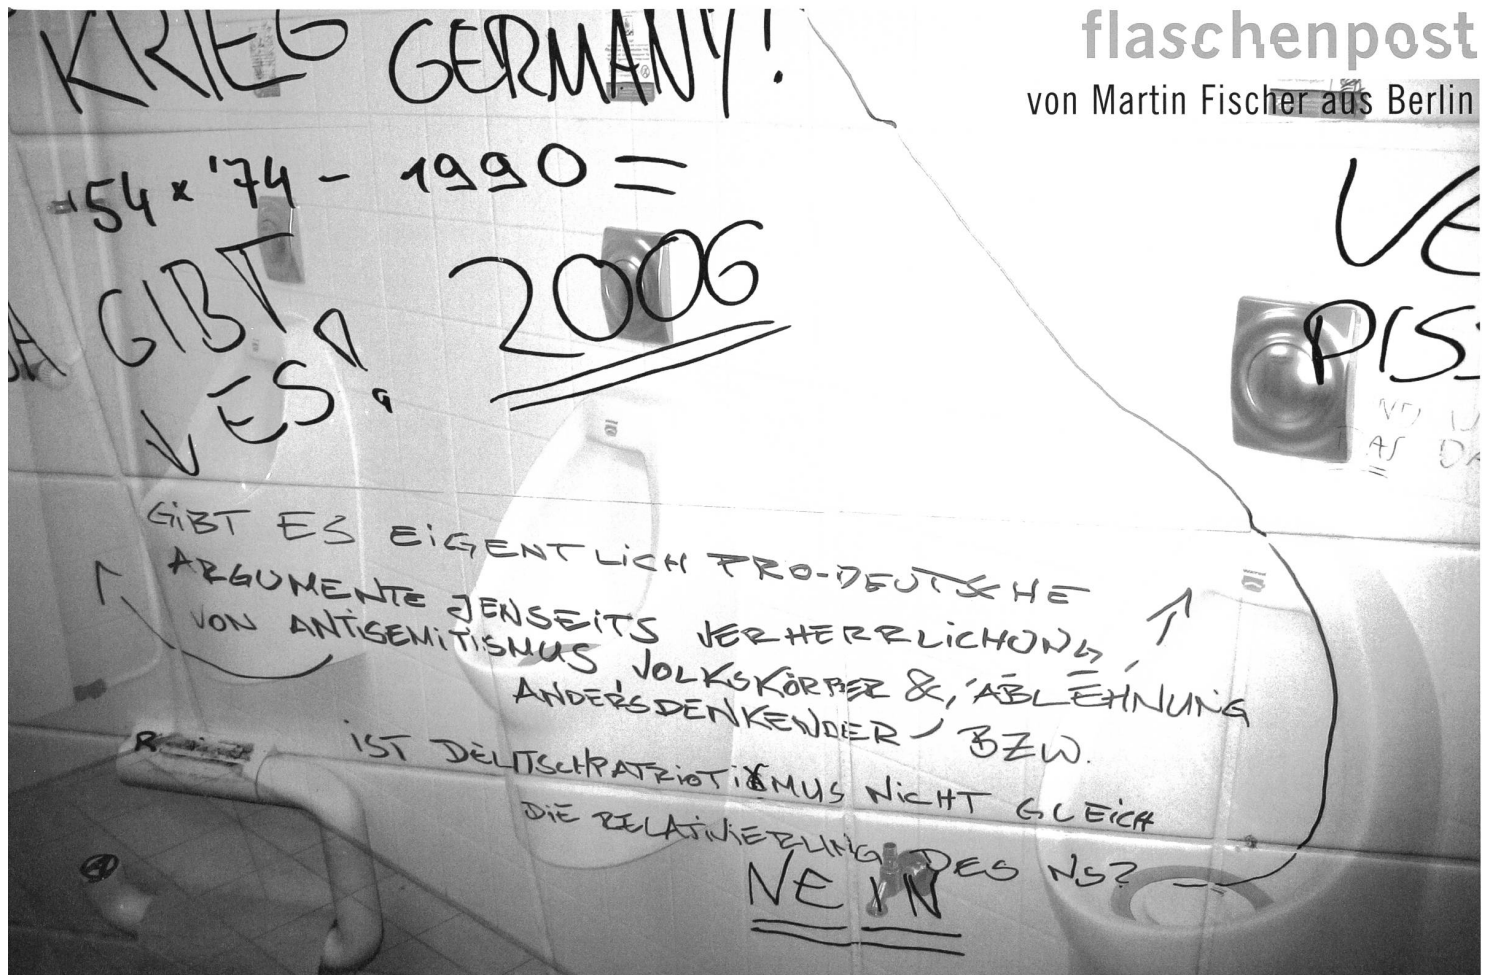 flaschenpost
von Martin Fischer aus Berlin
KRIEG GERMANY!
'54 x '74 - 1990 =
2006
GIBT
ES!
VE
PISS
AS DA
GIBT ES EIGENTLICH PRO-DEUTSCHE
ARGUMENTE JENSEITS VERHERRLICHUNG
VON ANTISEMITISMUS, VOLKSKÖRPER & ABLEHNUNG
ANDERSDENKENDER BZW.
IST DEUTSCHPATRIOTISMUS NICHT GLEICH
DIE RELATIVIERUNG DES NS?
NEIN